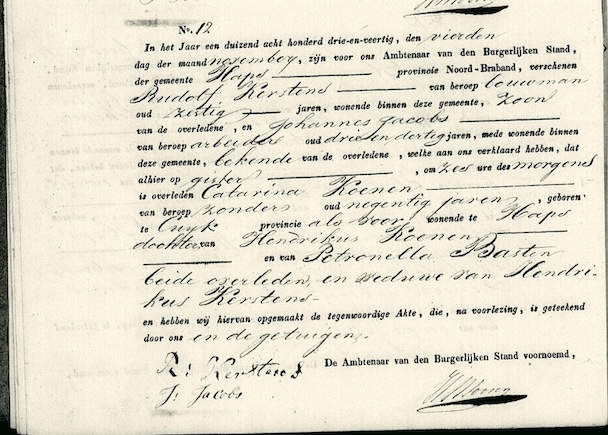 No. 12
In het Jaar een duizend acht honderd drie-en-veertig, den vierden
dag der maand november, zijn voor ons Ambtenaar van den Burgerlijken Stand,
der gemeente Haps provincie Noord-Braband, verschenen
Rudolf Kerstens van beroep bouwman
oud zestig jaren, wonende binnen deze gemeente, zoon
van de overledene, en Johannes Jacobs
van beroep arbeider oud drie en dertig jaren, mede wonende binnen
deze gemeente, bekende van de overledene, welke aan ons verklaard hebben, dat
alhier op gister, om zes ure des morgens
is overleden Catarina Koenen
van beroep zonder oud negentig jaren, geboren
te Cuyk provincie als voor wonende te Haps
dochter van Hendrikus Koenen
en van Petronella Basten
beide overleden, en weduwe van Hendri-
kus Kerstens
en hebben wij hiervan opgemaakt de tegenwoordige Akte, die, na voorlezing, is geteekend
door ons en de getuigen.
De Ambtenaar van den Burgerlijken Stand voornoemd,
R: Kerstens
J: Jacobs